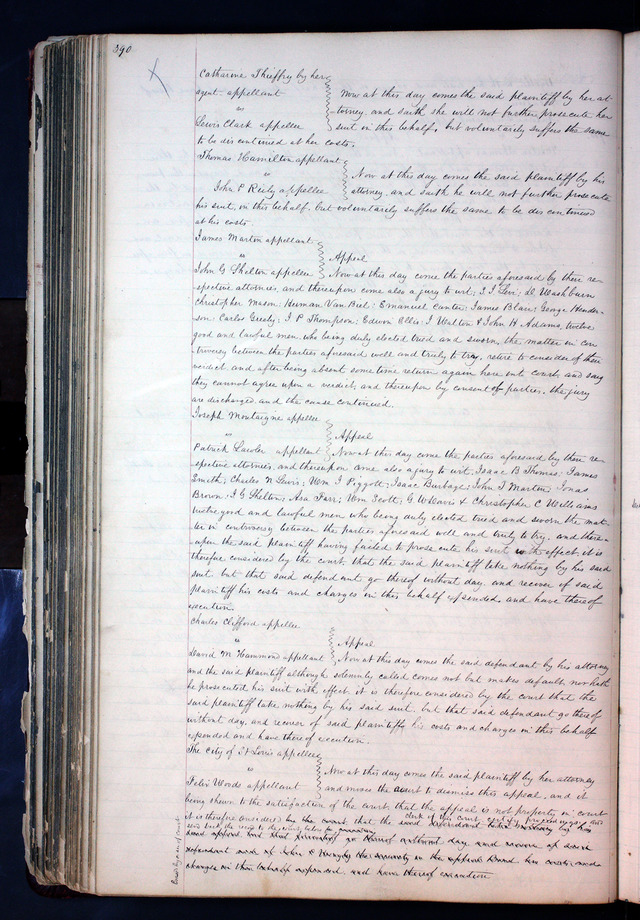 390
Catharine Thieffry by her
agent appellant
vs
Lewis Clark appellee
Now at this day comes the said plaintiff by her at-
torney, and saith she will not further prosecute her
suit in this behalf, but voluntarily suffers the same
to be discontinued at her costs.
Thomas Hamilton appellant
vs
John P Riely appellee
Now at this day comes the said plaintiff by his
attorney, and saith he will not further prosecute
his suit, in this behalf, but voluntarily suffers the same to be discontinued
at his costs.
James Marton appellant
vs
John G Shelton appellee
Appeal
Now at this day come the parties aforesaid by their re-
spective attornies, and thereupon come also a jury to wit; Levi; Washburn
Christopher Mason; Herman Van Biel; Emanuel Canter; James Blair; George Hender-
son; Carlos Greely; J P Thompson; Edwin Ellis; J Walton & John H Adams, twelve
good and lawful men, who being duly elected tried and sworn, the matter in con-
troversy between the parties aforesaid well and truly to try, retire to consider of their
verdict, and after being absent some time return again here into court, and say
they cannot agree upon a verdict, and thereupon by consent of parties, the jury
are discharged, and the cause continued.
Joseph Montaigne appellee
vs
Patrick Lawler appellant
Appeal
Now at this day come the parties aforesaid by their re-
spective attornies, and thereupon come also a jury to wit; Isaac B Thomas; James
Smith; Charles N Lewis; Wm J Piggott; Isaac Burbage; John T Martin; Jonas
Brown; J G Shelton; Asa Farr; Wm Scott; G W Weavis & Christopher C Williams
twelve good and lawful men who being duly elected tried and sworn the mat-
ter in controversy between the parties aforesaid well and truly to try, and there-
upon the said plaintiff having failed to prosecute his suit with effect, it is
therefore considered by the court, that the said plaintiff take nothing by his said
suit, but that said defendant go thereof without day, and recover of said
plaintiff his costs and charges in this behalf expended, and have thereof
execution.
Charles Clifford appellee
vs
David M Hammond appellant
Appeal
Now at this day comes the said defendant by his attorney
and the said plaintiff although solemnly called comes not but makes default, nor hath
he prosecuted his suit with effect, it is therefore considered by the court that the
said plaintiff take nothing by his said suit, but that said defendant go thereof
without day, and recover of said plaintiff, his costs and charges in this behalf
expended and have thereof execution.
The City of St Louis appellee
vs
Felix Woods appellant
Now at this day comes the said plaintiff by her attorney
and moves the court to dismiss this appeal, and it
being shewn to the satisfaction of the court, that the appeal is not properly in court
it is therefore considered by the court that the said defendant take nothing by his
said appeal but that plaintiff go thereof without day and recover of said
defendant and of John
charges in this behalf expended, and have thereof execution